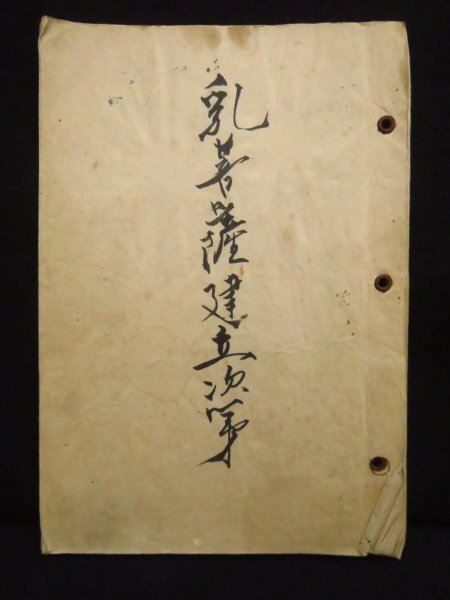 乳菩薩建立次第